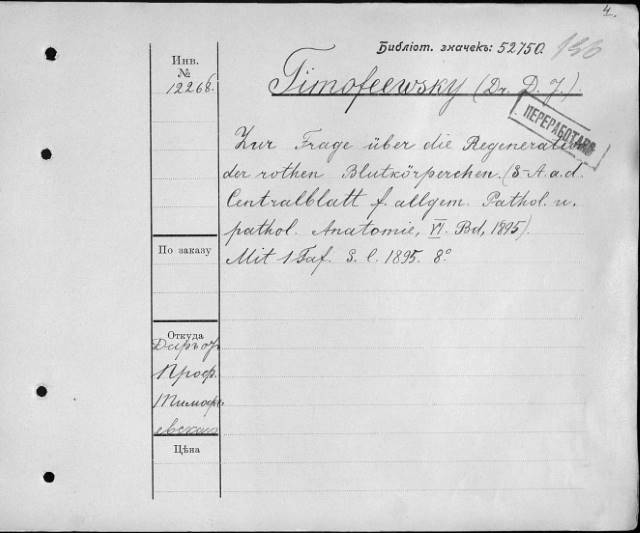 4.
Библіот. значекъ: 52750. 136
Инв.
№
12268.
Timofeewsky (Dr. D. J.).
ПЕРЕРАБОТАНО
Zur Frage über die Regeneration
der rothen Blutkörperchen. (S-A. a. d.
Centralblatt f. allgem. Pathol. u.
pathol. Anatomie, VI. Bd, 1895).
Mit 1 Taf. S. l. 1895. 8°
По заказу
Откуда
Даръ отъ
Проф.
Тимофе
евскаго
Цѣна